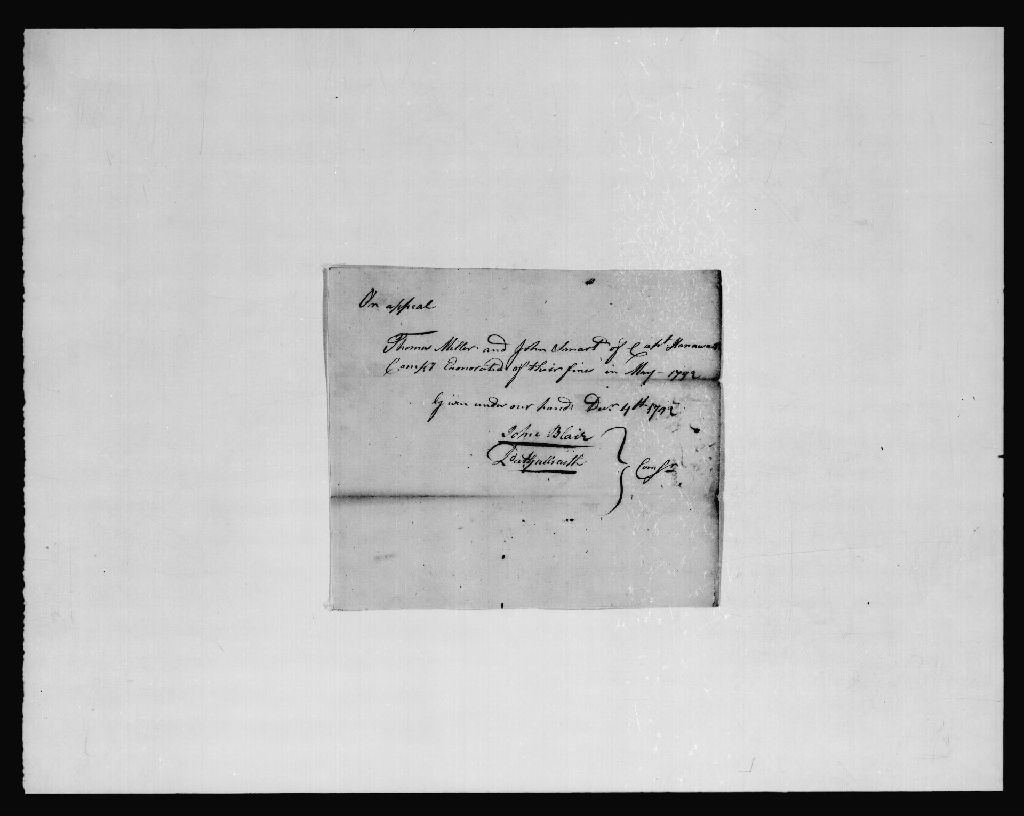 On appeal
Thomas Miller and John Smart of Capt Hanawalt
Compy Exonorated of their fine in May 1792
Given under our hands Decr 4th 1792
John Blair
Galbraith
Comsrs